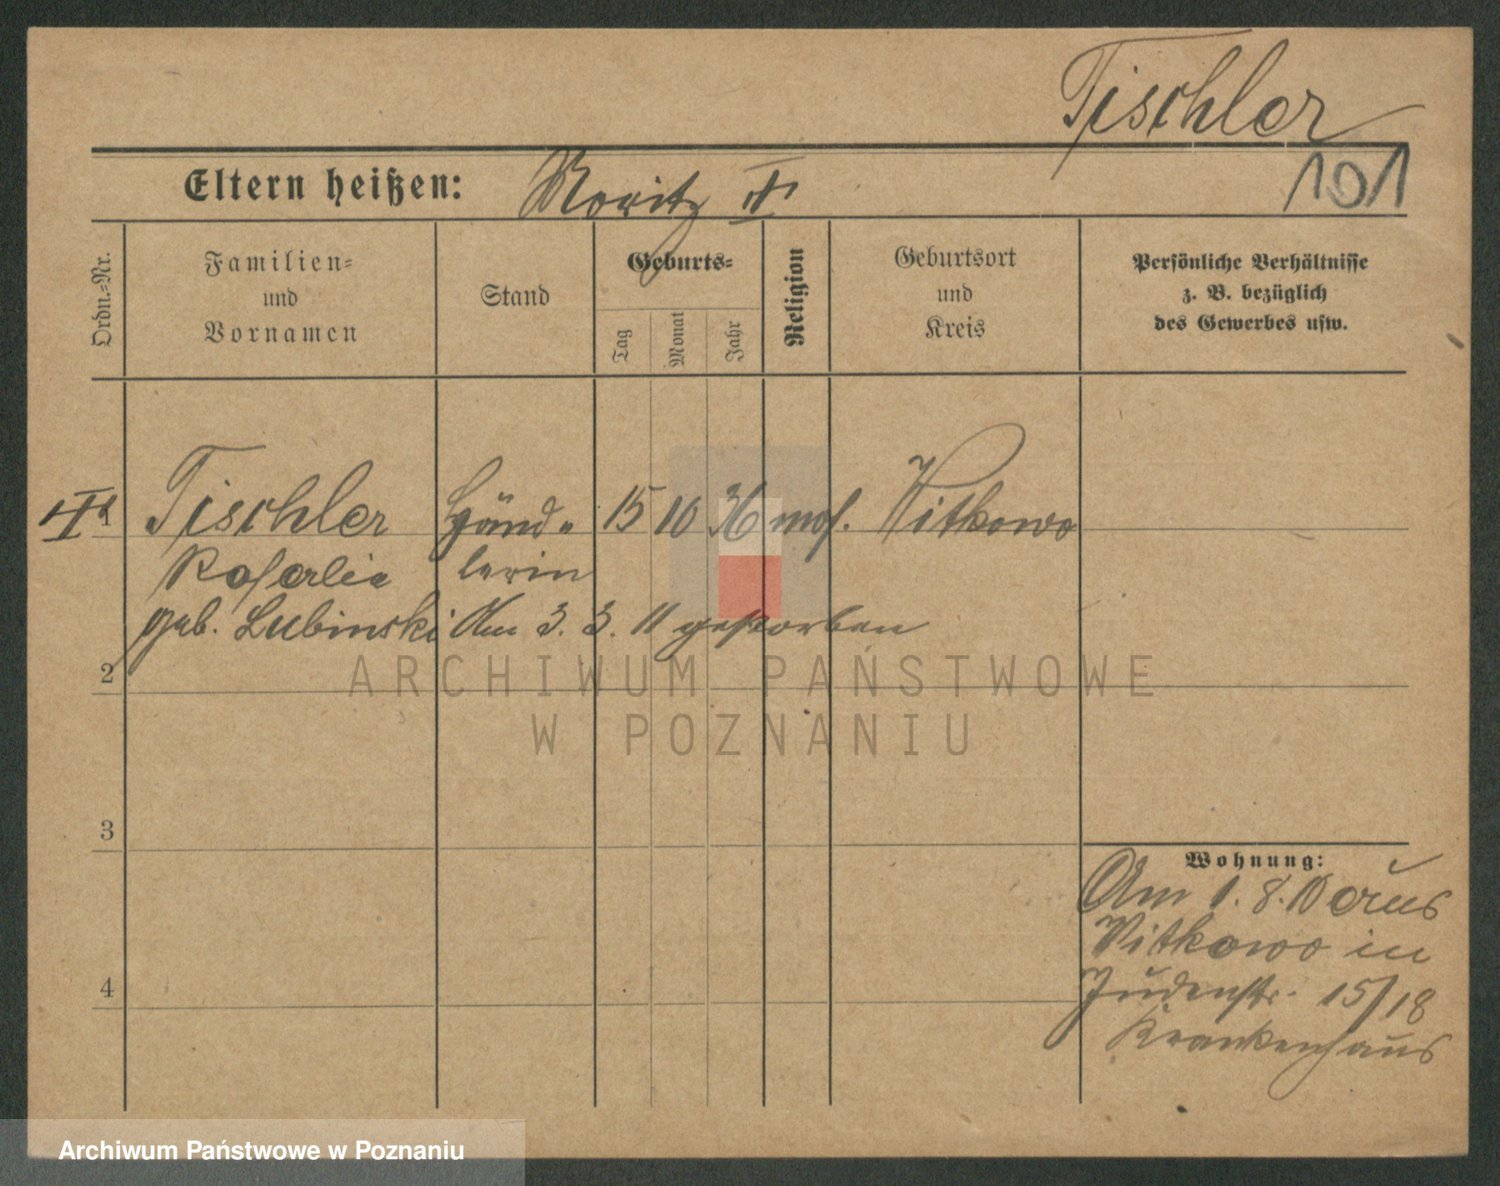 Tischler
101
Eltern heißen: Moritz
Ordn.=Nr.
Familien=
und
Vornamen
Stand
Geburts=
Tag
Monat
Jahr
Religion
Geburtsort
und
Kreis
Persönliche Verhältnisse
z. B. bezüglich
des Gewerbes usw.
1 Tischler Händ= 15 10 36 mos. Witkowo
Rosalie lerin
geb. Lubinski Am 3. 3. 11 gestorben
2
3
4
Wohnung:
Am 1. 8. 10 aus
Witkowo in
Judenstr. 15/18
Krankenhaus
ARCHIWUM PAŃSTWOWE
W POZNANIU
Archiwum Państwowe w Poznaniu